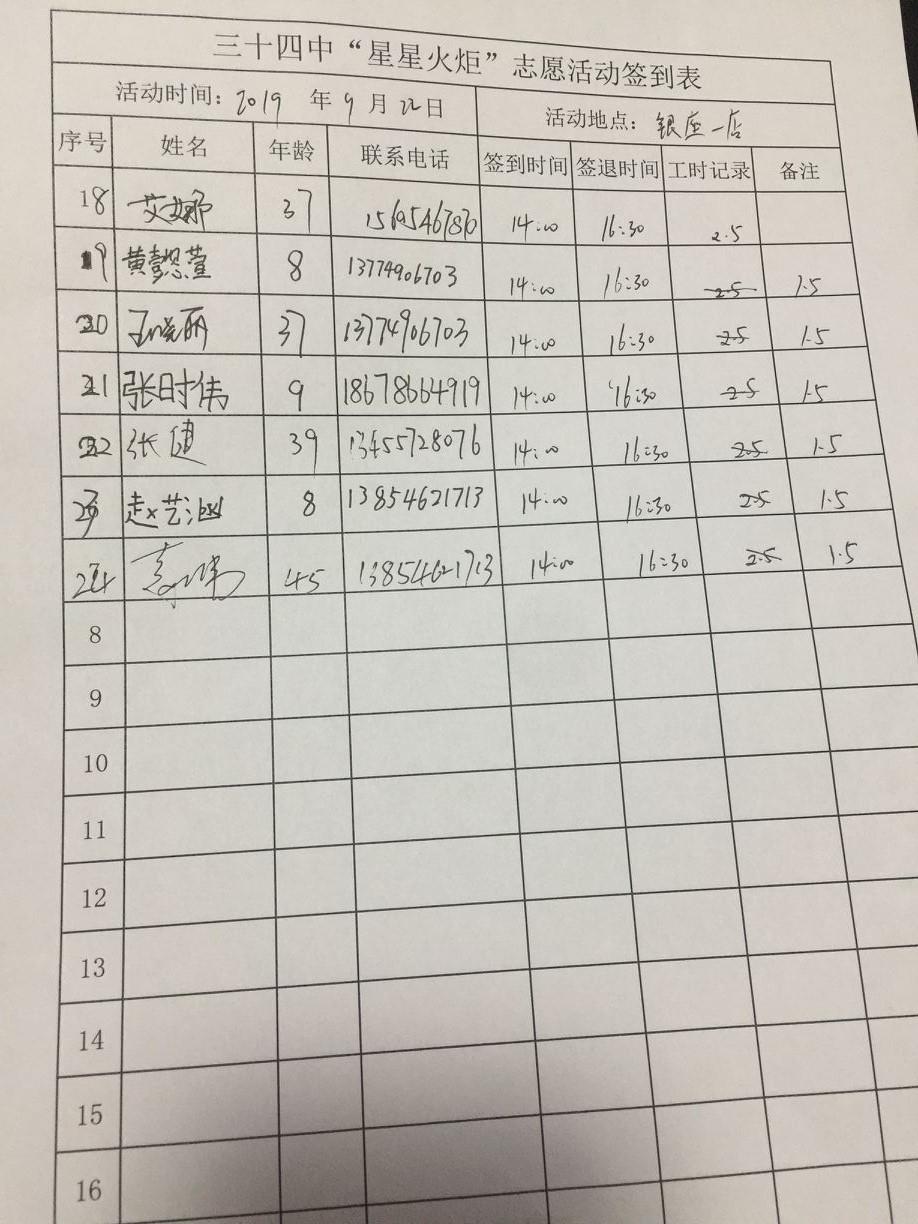 三十四中“星星火炬”志愿活动签到表
活动时间：2019 年 9 月 22 日 活动地点：银座一店
序号 姓名 年龄 联系电话 签到时间 签退时间 工时记录 备注
18 艾娜 37 15695467870 14:00 16:30 2.5
19 黄懿萱 8 13774906703 14:00 16:30 2.5 1.5
20 王晓丽 37 13774906703 14:00 16:30 2.5 1.5
21 张时伟 9 18678664919 14:00 16:30 2.5 1.5
22 张健 39 13455728076 14:00 16:30 2.5 1.5
23 赵艺涵 8 13854621713 14:00 16:30 2.5 1.5
24 45 13854621713 14:00 16:30 2.5 1.5
8
9
10
11
12
13
14
15
16